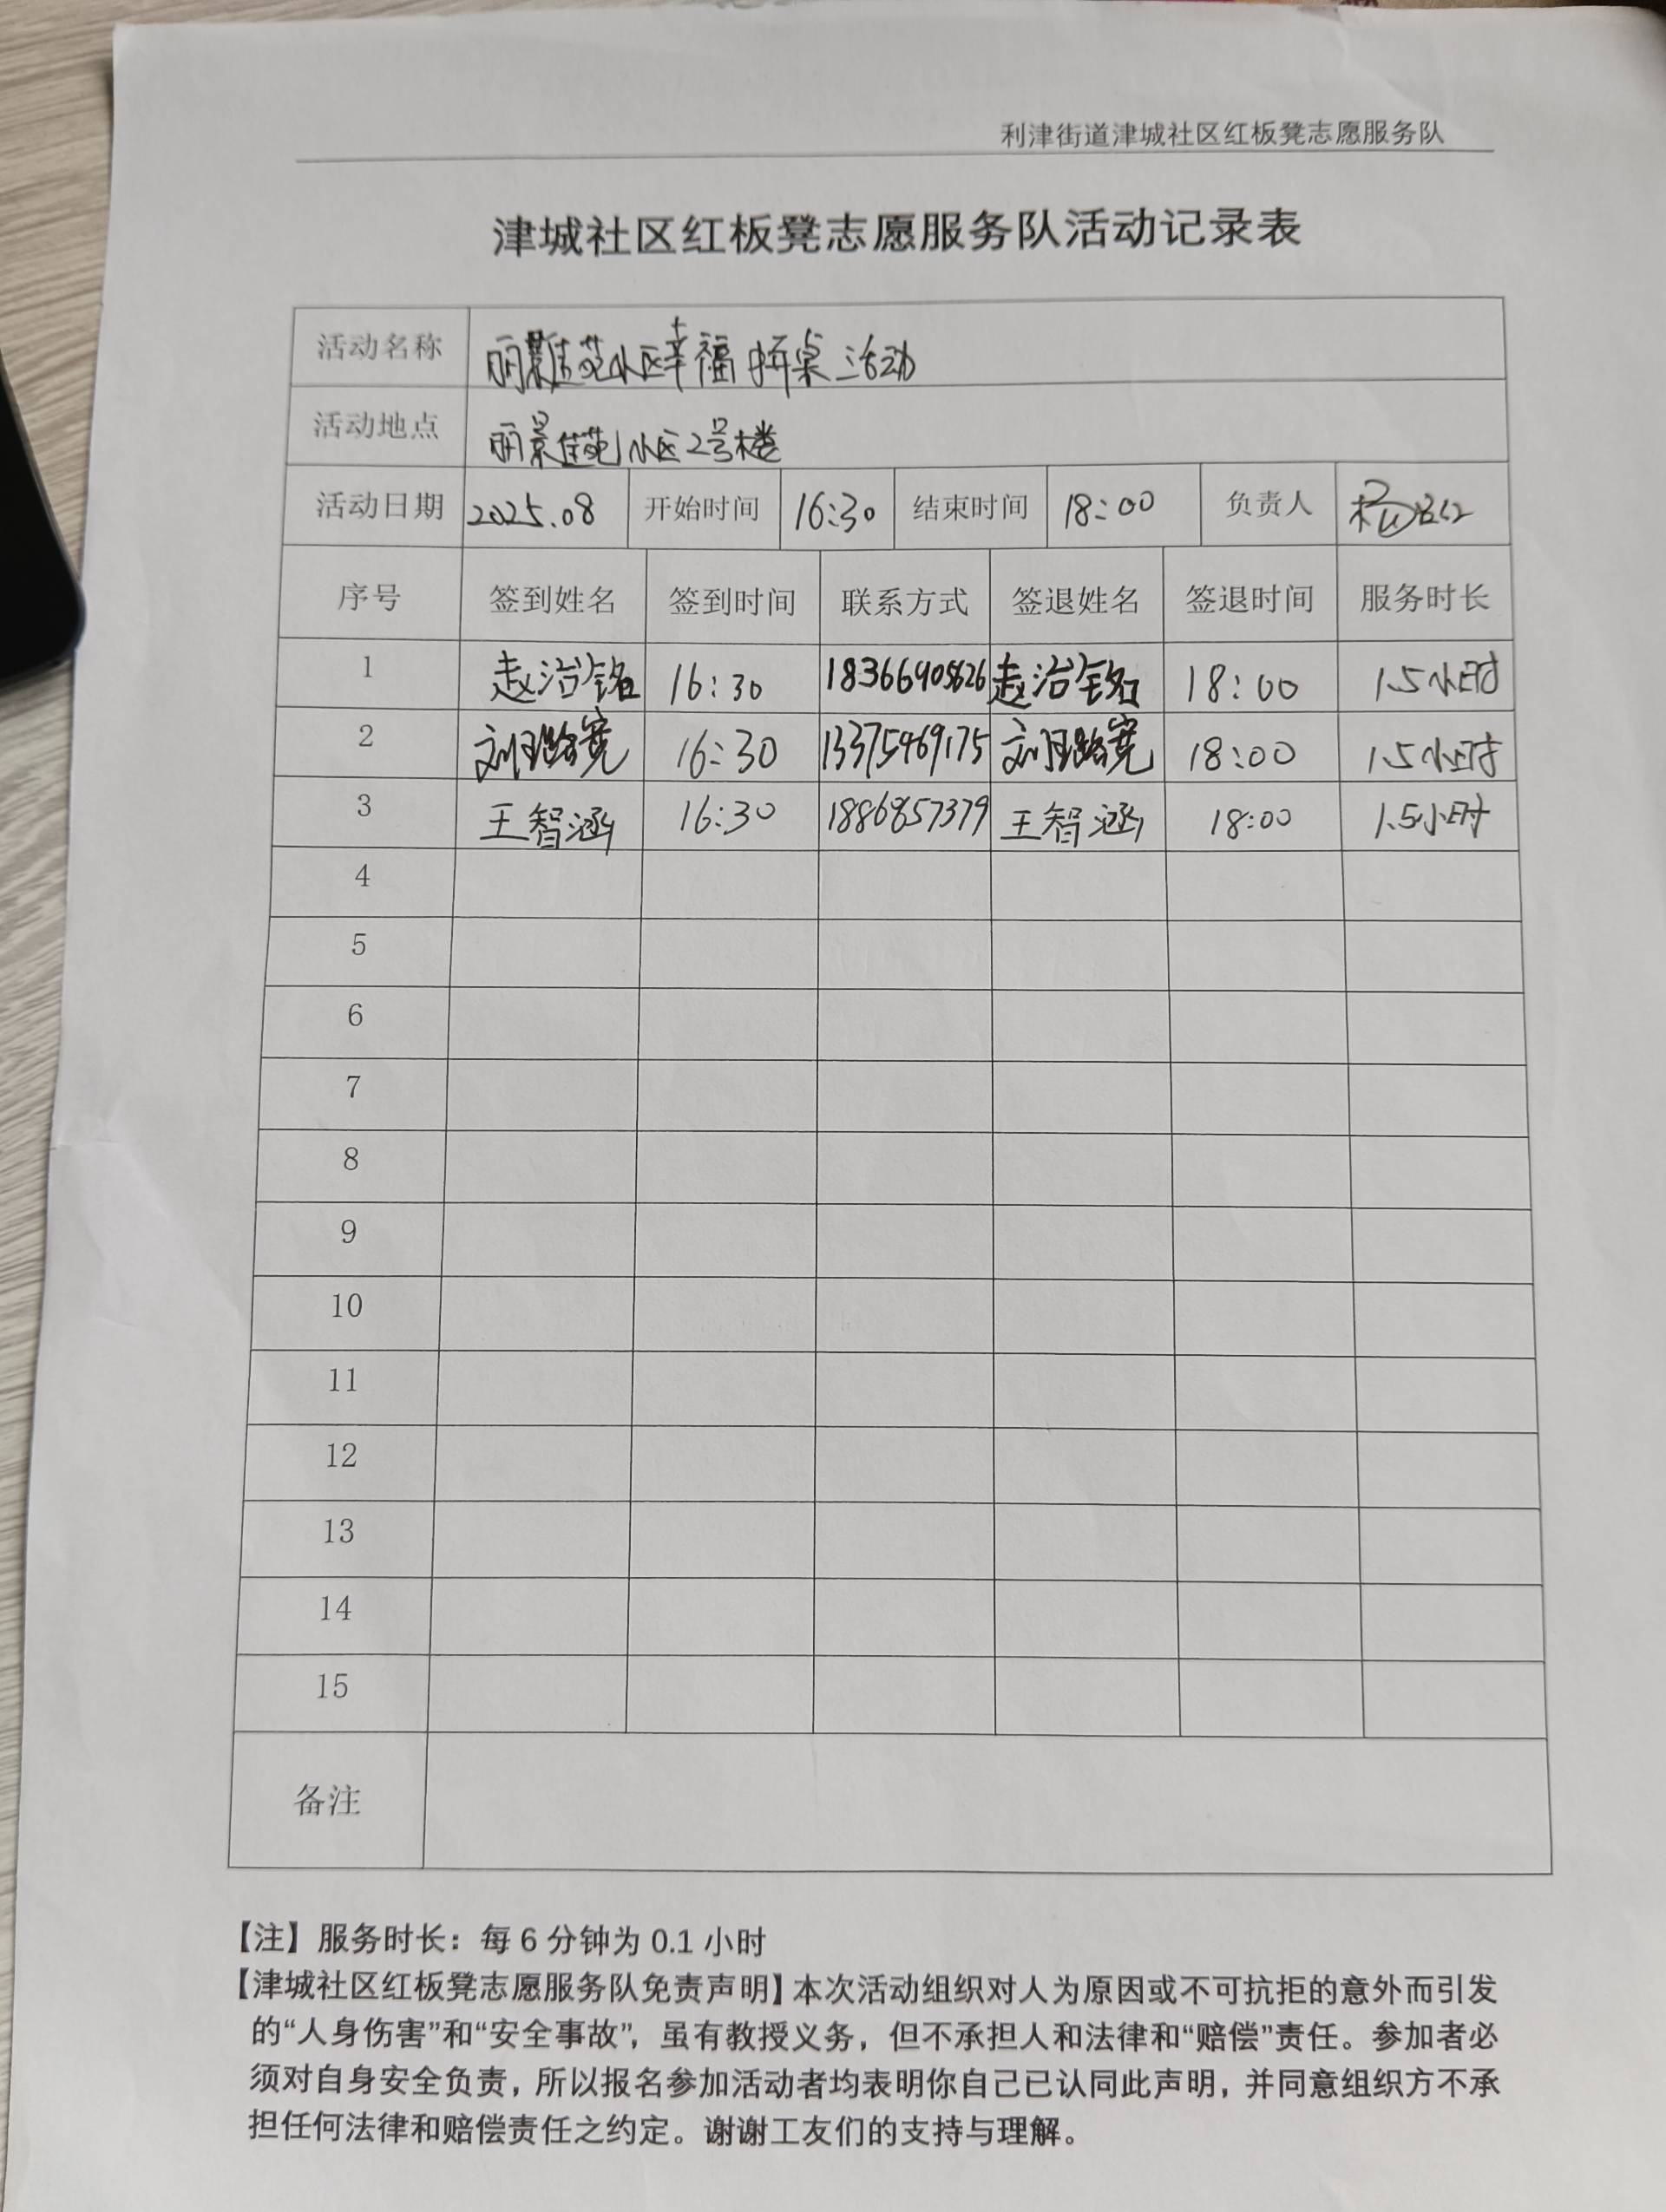 利津街道津城社区红板凳志愿服务队
津城社区红板凳志愿服务队活动记录表
活动名称 丽景佳苑小区幸福拼桌活动
活动地点 丽景佳苑小区2号楼
活动日期 2025.08 开始时间 16:30 结束时间 18:00 负责人
序号 签到姓名 签到时间 联系方式 签退姓名 签退时间 服务时长
1 赵治铭 16:30 18366905626 赵治铭 18:00 1.5小时
2 16:30 13375469175 18:00 1.5小时
3 王智涵 16:30 1886857379 王智涵 18:00 1.5小时
4
5
6
7
8
9
10
11
12
13
14
15
备注
【注】服务时长：每 6 分钟为 0.1 小时
【津城社区红板凳志愿服务队免责声明】本次活动组织对人为原因或不可抗拒的意外而引发
的“人身伤害”和“安全事故”，虽有教授义务，但不承担人和法律和“赔偿”责任。参加者必
须对自身安全负责，所以报名参加活动者均表明你自己已认同此声明，并同意组织方不承
担任何法律和赔偿责任之约定。谢谢工友们的支持与理解。